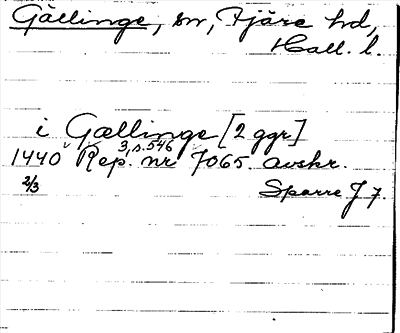 Gällinge, sn, Fjäre hd,
Hall. l.
i Gællinge [2 ggr]
1440 Rep. 3, s. 546 nr 7065. avskr.
2/3 Sparre J 7.